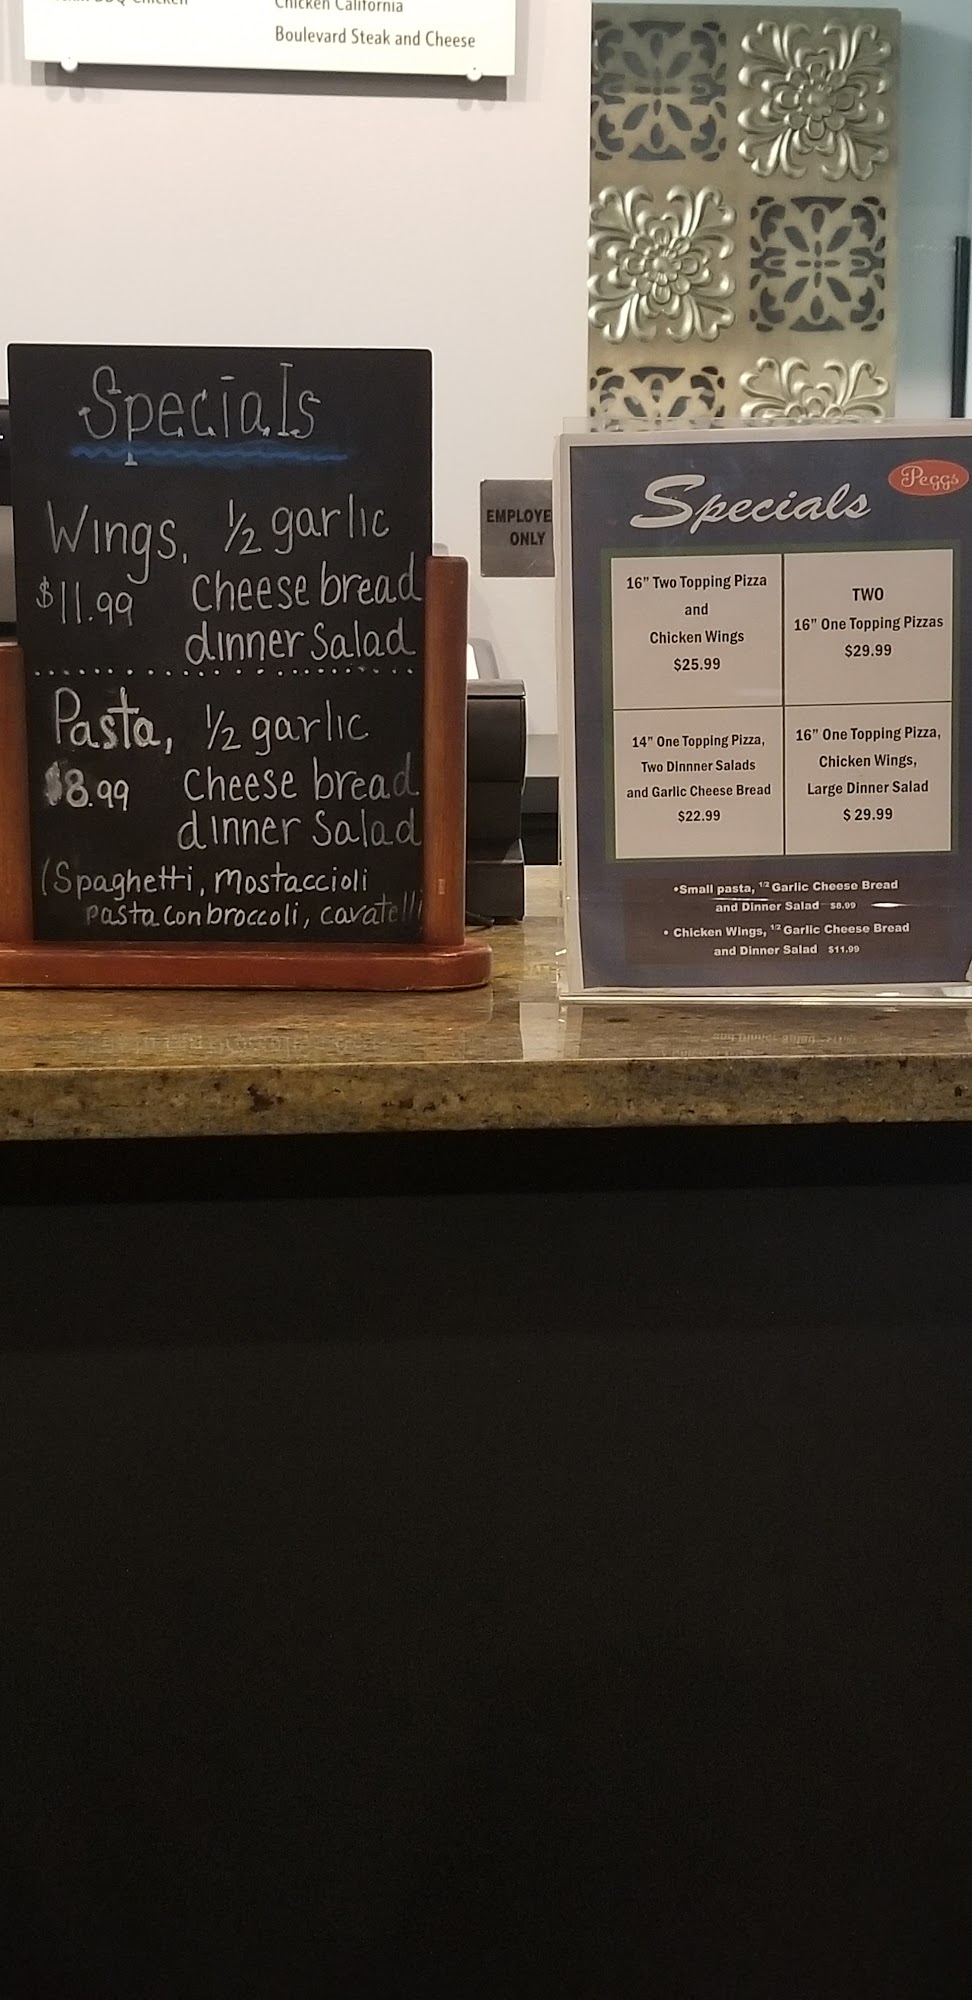 Chicken California
Boulevard Steak and Cheese
Specials
Wings, 1/2 garlic
$11.99 cheese bread
dinner salad
Pasta, 1/2 garlic
$8.99 cheese bread
dinner salad
(Spaghetti, mostaccioli
pasta con broccoli, cavatelli
EMPLOYE
ONLY
Peggs
Specials
16" Two Topping Pizza
and
Chicken Wings
$25.99
TWO
16" One Topping Pizzas
$29.99
14" One Topping Pizza,
Two Dinnner Salads
and Garlic Cheese Bread
$22.99
16" One Topping Pizza,
Chicken Wings,
Large Dinner Salad
$ 29.99
•Small pasta, 1/2 Garlic Cheese Bread
and Dinner Salad $8.99
• Chicken Wings, 1/2 Garlic Cheese Bread
and Dinner Salad $11.99